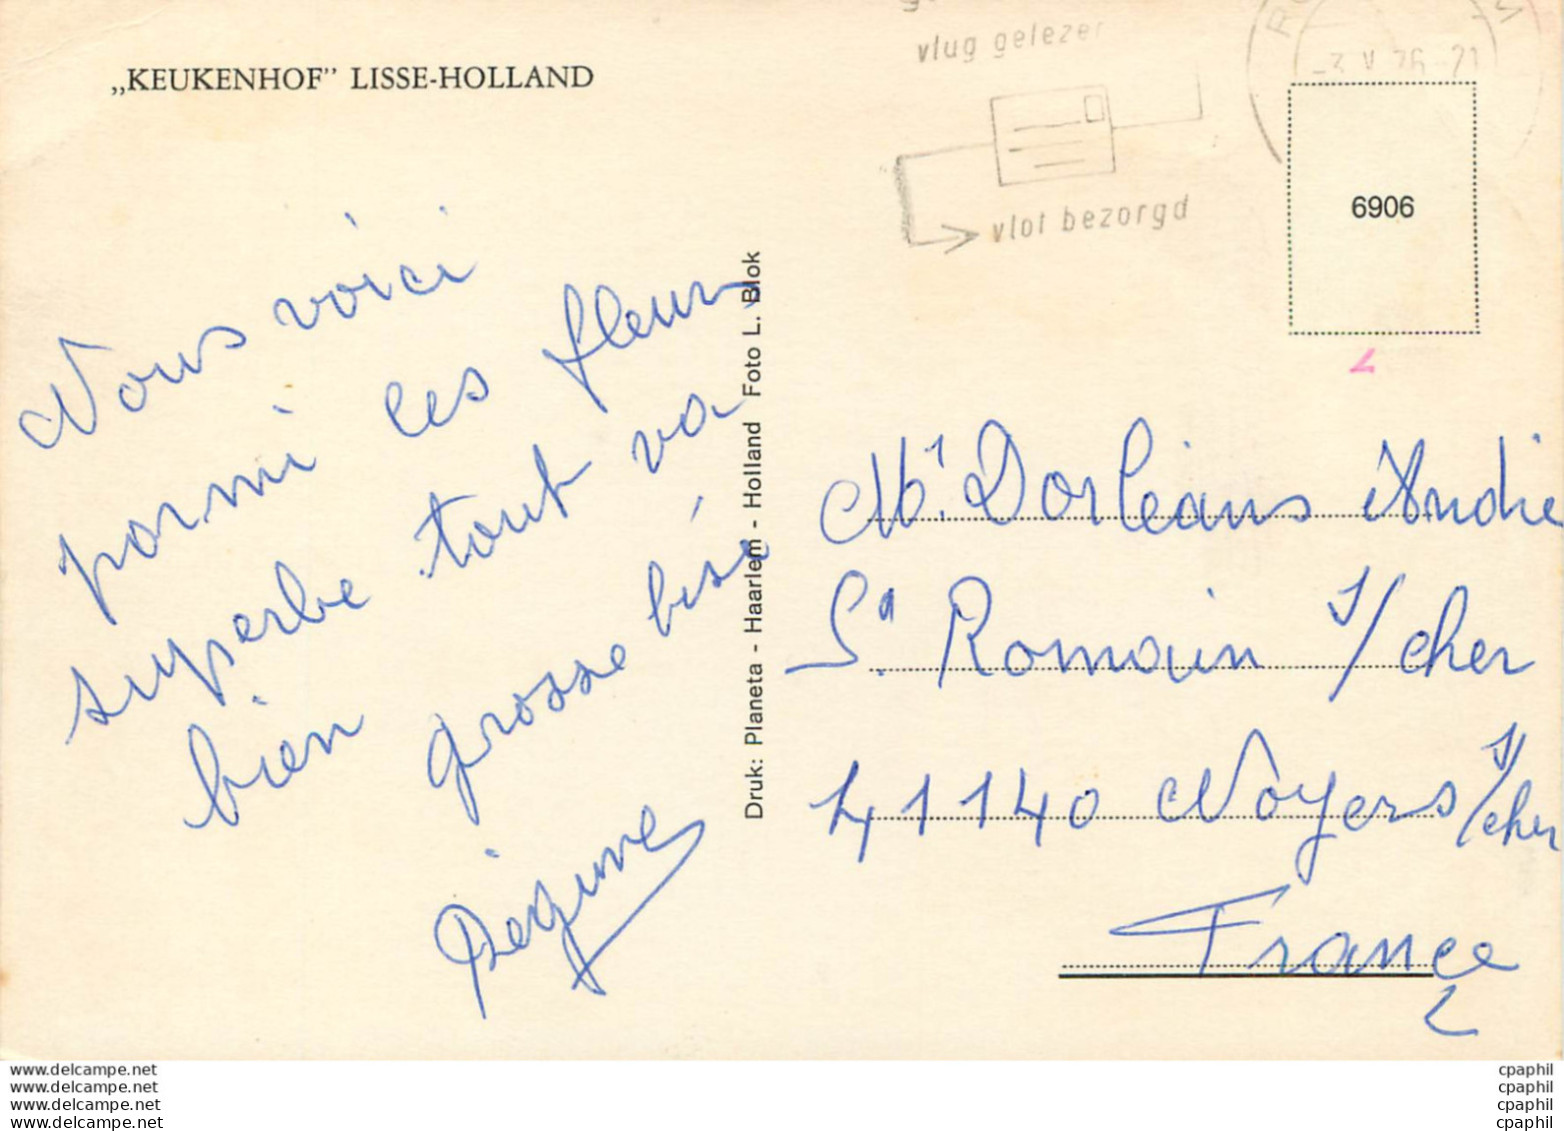 „KEUKENHOF” LISSE-HOLLAND
vlug gelezen
vlot bezorgd
-3.V.76-21
6906
Nous voici
parmi les fleurs
superbe tout va
bien grosse bise
Régine
Druk: Planeta - Haarlem - Holland Foto L. Blok
Mr Dorléans Andrée
St Romain s/cher
41140 Noyers s/cher
France
www.delcampe.net
www.delcampe.net
www.delcampe.net
www.delcampe.net
cpaphil
cpaphil
cpaphil
cpaphil